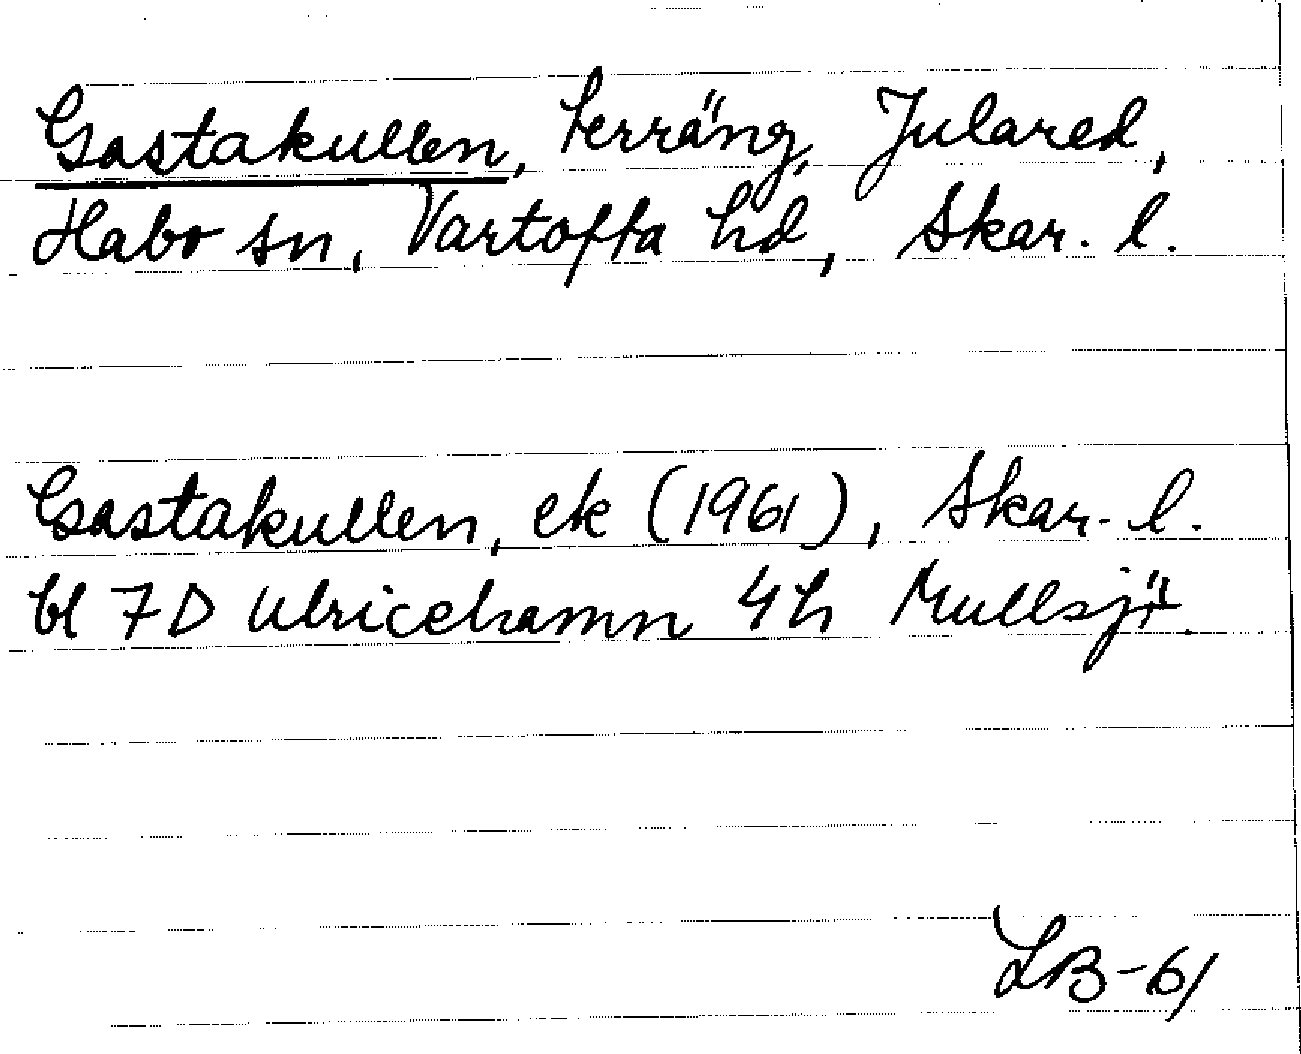 Gastakullen, terräng, Julared,
Habo sn, Vartofta hd, Skar. l.
Gastakullen, ek (1961), Skar. l.
bl 7D Ulricehamn 4h Mullsjö.
LB-61